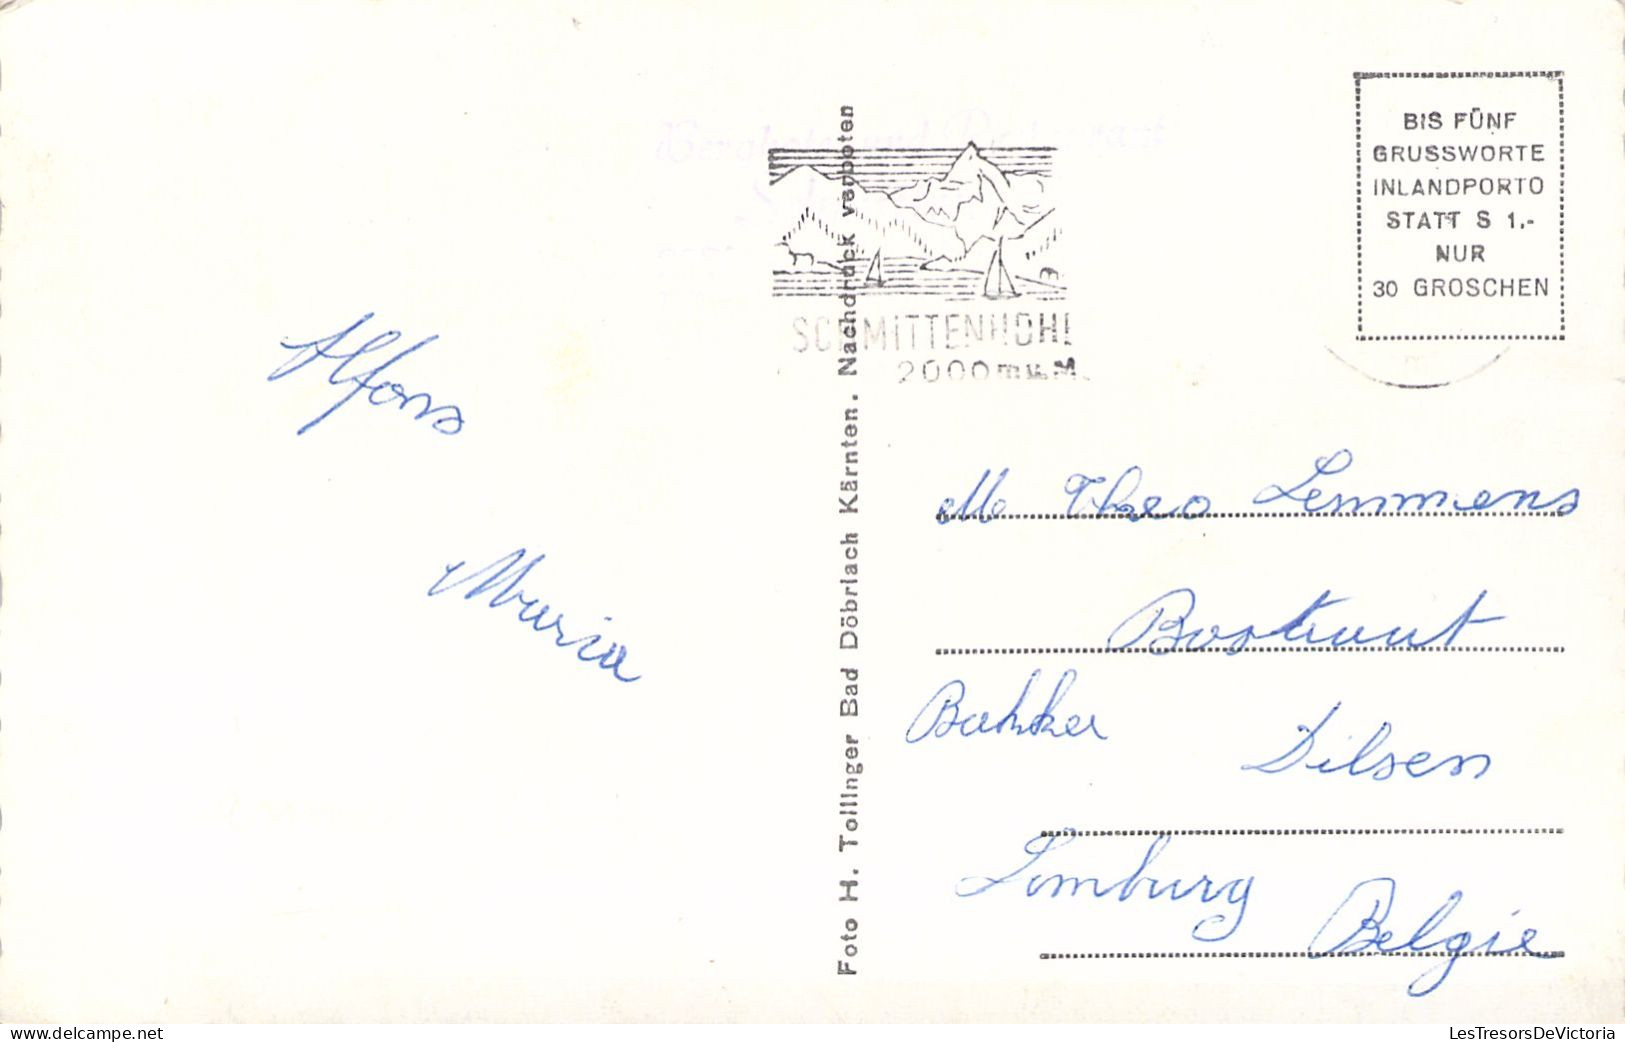 Alfons
Maria
Foto H. Tollinger Bad Döbriach Kärnten. Nachdruck verboten
SCHMITTENHÖHE
2000 m ü. M.
BIS FÜNF
GRUSSWORTE
INLANDPORTO
STATT S 1.-
NUR
30 GROSCHEN
Theo Lemmens
Bakker Dilsen
Limburg
Belgie
delcampe.net
LesTresorsDeVictoria